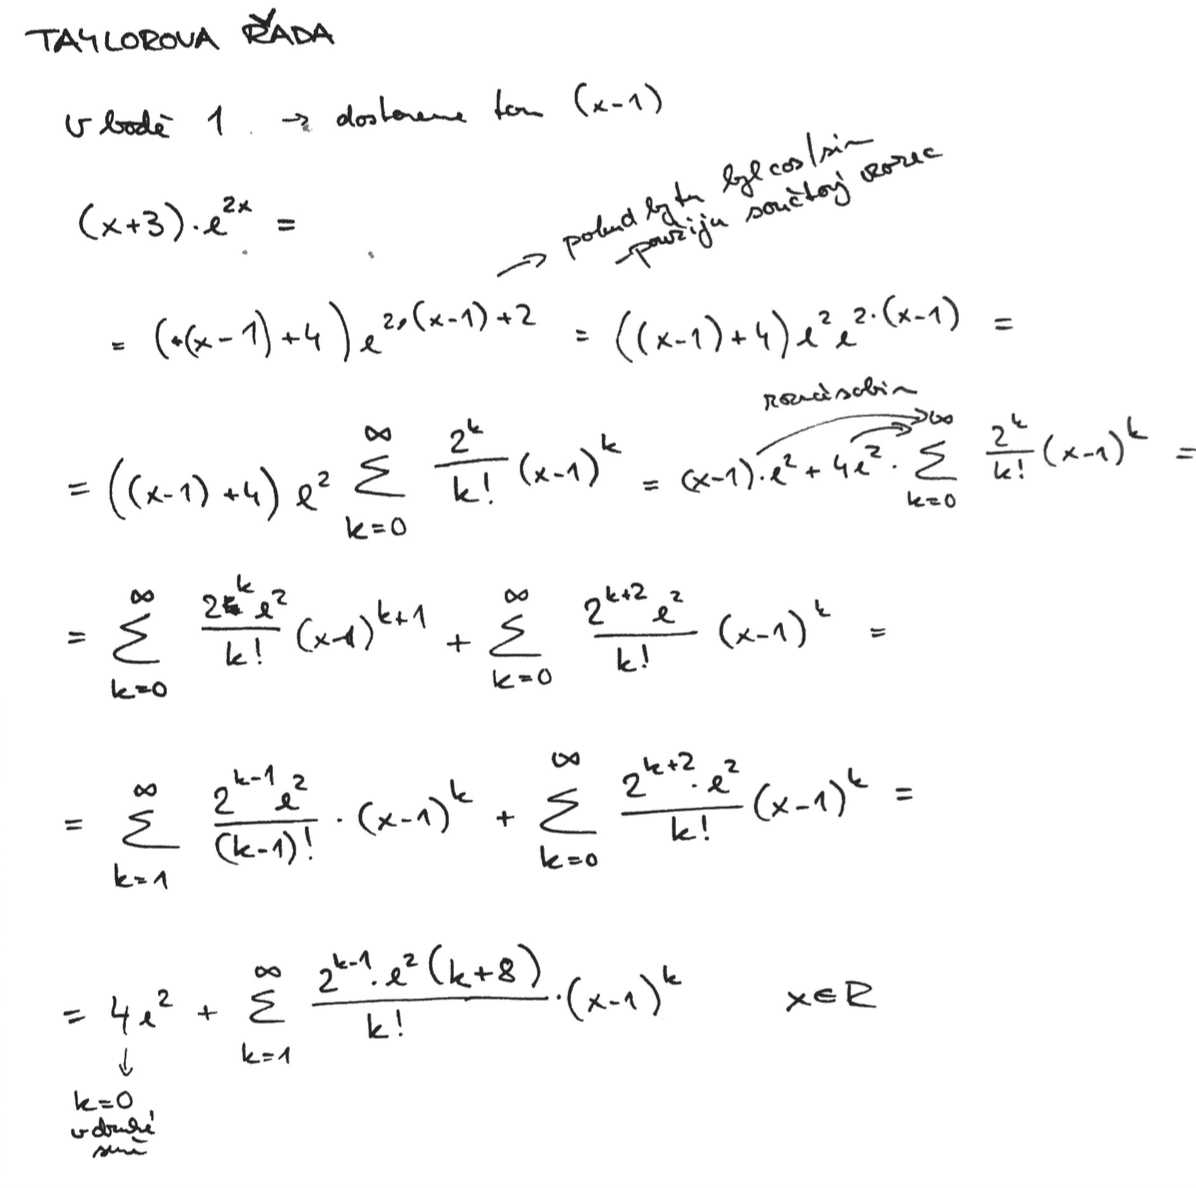 TAYLOROVA ŘADA
v bodě 1 → dostaneme tam (x-1)
(x+3)·e^{2x} =
→ pokud by tu byl cos/sin
-použiju součtový vzorec
= ((x-1)+4) e^{2·(x-1)+2} = ((x-1)+4) e^2 e^{2·(x-1)} =
roznásobím
= ((x-1)+4) e^2 ∑_{k=0}^{∞} 2^k/k! (x-1)^k = (x-1)·e^2 + 4e^2 · ∑_{k=0}^{∞} 2^k/k! (x-1)^k =
= ∑_{k=0}^{∞} 2^k e^2/k! (x-1)^{k+1} + ∑_{k=0}^{∞} 2^{k+2} e^2/k! (x-1)^k =
= ∑_{k=1}^{∞} 2^{k-1} e^2/(k-1)! · (x-1)^k + ∑_{k=0}^{∞} 2^{k+2}·e^2/k! (x-1)^k =
= 4e^2 + ∑_{k=1}^{∞} 2^{k-1}·e^2(k+8)/k! ·(x-1)^k x∈R
↓
k=0
v druhé
sumě